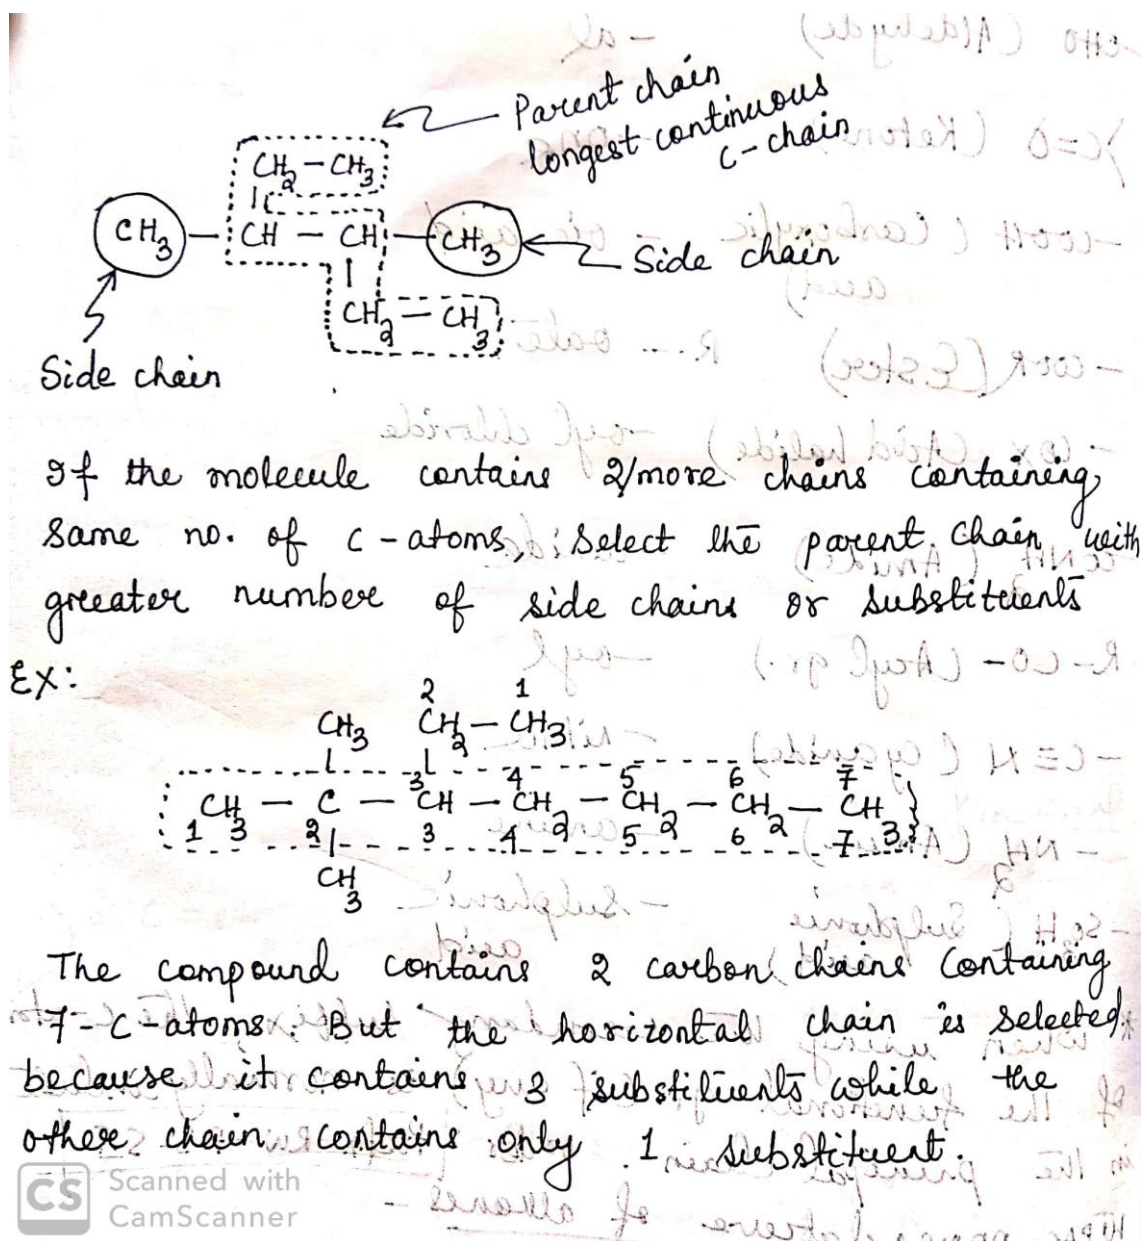 Parent chain
longest continuous
C-chain
CH2 – CH3
CH3 – CH – CH – CH3
Side chain
CH2 – CH3
Side chain
If the molecule contains 2/more chains containing
same no. of C-atoms, select the parent chain with
greater number of side chains or substituents
EX:
2 1
CH3 CH2 – CH3
3 4 5 6 7
CH3 – C – CH – CH2 – CH2 – CH2 – CH3
1 2 3 4 5 6 7
CH3
The compound contains 2 carbon chains containing
7-C-atoms. But the horizontal chain is selected,
because it contains 3 substituents while the
other chain contains only 1 substituent.
CS Scanned with
CamScanner